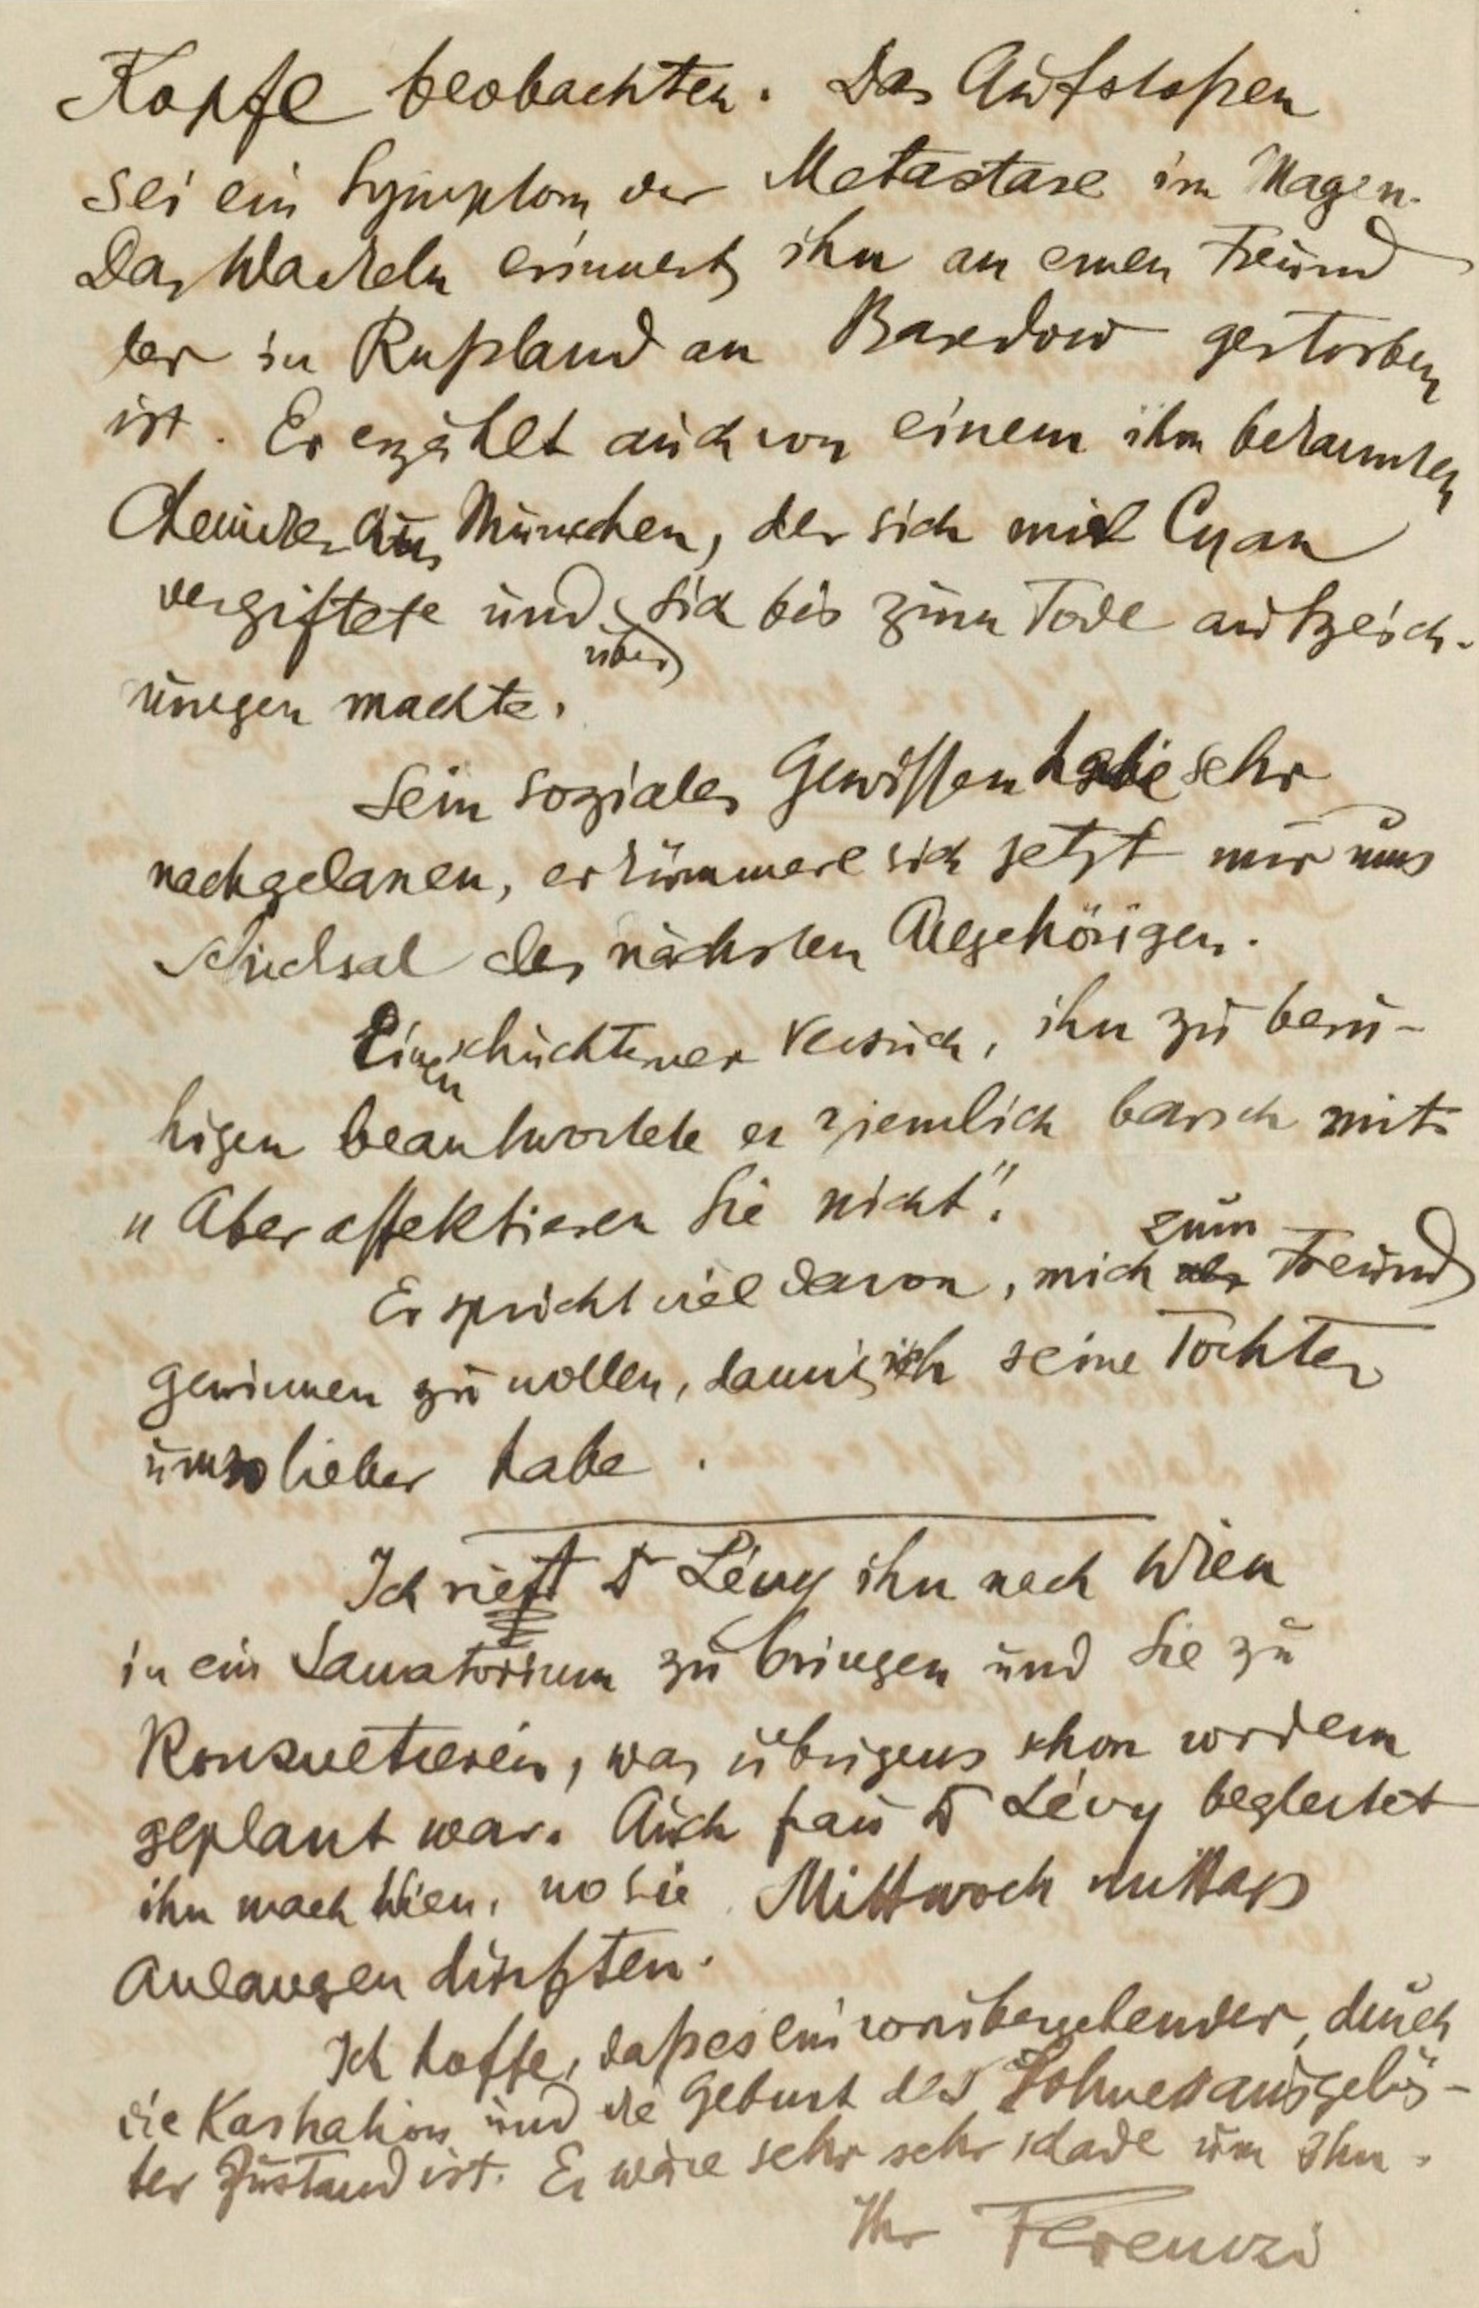 Kopfe beobachten. Das Aufstoßen
sei ein Symptom der Metastase im Magen.
Das Wackeln erinnert ihn an einen Freund
der in Rußland an Basedow gestorben
ist. Er erzählt auch von einem ihm bekannten
Chemiker aus München, der sich mit Cyan
vergiftete und über sich bis zum Tode aufzeich-
nungen machte.
Sein soziales Gewissen habe sehr
nachgelassen, er kümmere sich jetzt nur ums
Schicksal der nächsten Angehörigen.
Einen schüchterner Versuch, ihn zu beru-
higen beantwortete er ziemlich barsch mit
"Aber affektieren Sie nicht".
Er spricht viel davon, mich zum Freund
gewinnen zu wollen, damit ich seine Tochter
umso lieber habe.
Ich riet Dr Lévy ihn nach Wien
in ein Sanatorium zu bringen und Sie zu
Konsultieren, was übrigens schon vordem
geplant war. Auch Frau Dr Lévy begleitet
ihn nach Wien, wo sie Mittwoch mittags
anlangen dürften.
Ich hoffe, daß es ein vorübergehender, durch
die Kastration und die Geburt des Sohnes ausgelös-
ter Zustand ist. Es wäre sehr sehr schade um ihn.
Ihr Ferenczi